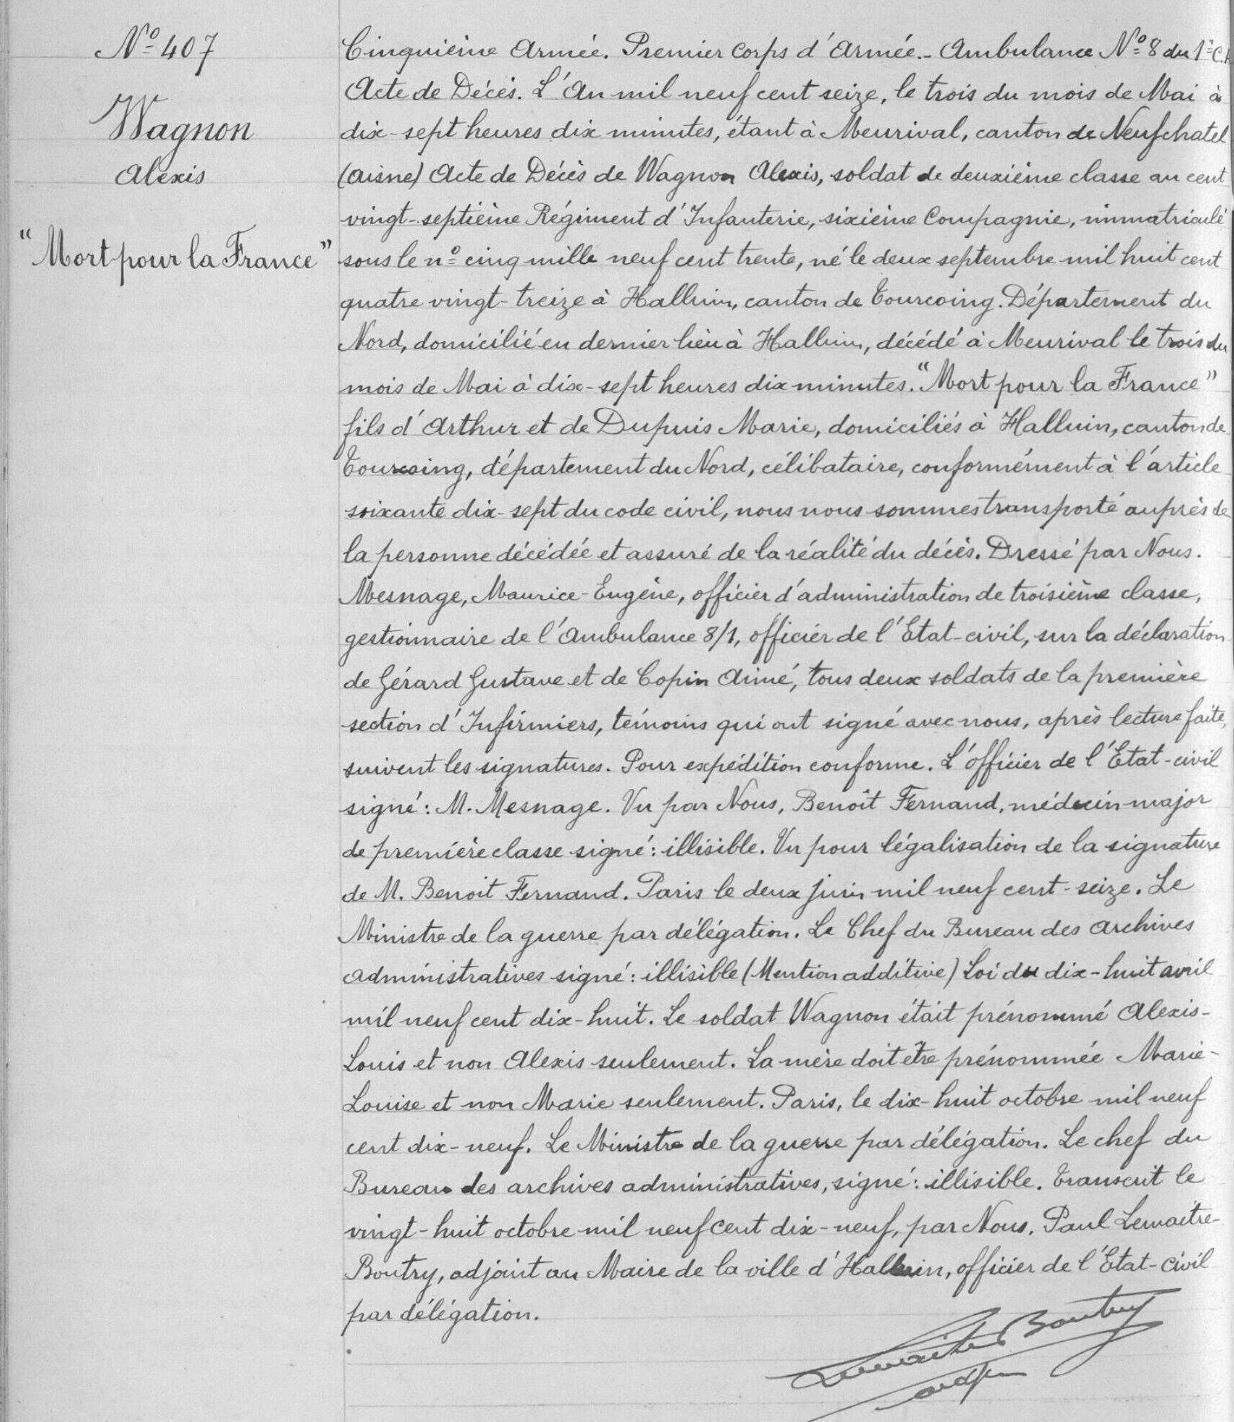 Nº 407
Wagnon
Alexis
"Mort pour la France"
Cinquième Armée. Premier corps d'Armée. - Ambulance Nº 8 du 1er C.A
Acte de Décès. L'An mil neuf cent seize, le trois du mois de Mai à
dix-sept heures dix minutes, étant à Meurival, canton de Neufchatel
(Aisne) Acte de Décès de Wagnon Alexis, soldat de deuxième classe au cent
vingt-septième Régiment d'Infanterie, sixième Compagnie, immatriculé
sous le nº cinq mille neuf cent trente, né le deux septembre mil huit cent
quatre vingt-treize à Halluin, canton de Tourcoing. Département du
Nord, domicilié en dernier lieu à Halluin, décédé à Meurival le trois du
mois de Mai à dix-sept heures dix minutes. "Mort pour la France"
fils d'Arthur et de Dupuis Marie, domiciliés à Halluin, canton de
Tourcoing, département du Nord, célibataire, conformément à l'article
soixante dix-sept du code civil, nous nous sommes transporté auprès de
la personne décédée et assuré de la réalité du décès. Dressé par Nous.
Mesnage, Maurice-Eugène, officier d'administration de troisième classe,
gestionnaire de l'Ambulance 8/1, officier de l'Etat-civil, sur la déclaration
de Gérard Gustave et de Copin Aimé, tous deux soldats de la première
section d'Infirmiers, témoins qui ont signé avec nous, après lecture faite,
suivent les signatures. Pour expédition conforme. L'officier de l'Etat-civil
signé: M. Mesnage. Vu par Nous, Benoît Fernand, médecin major
de première classe signé: illisible. Vu pour légalisation de la signature
de M. Benoit Fernand. Paris le deux juin mil neuf cent-seize. Le
Ministre de la guerre par délégation. Le Chef du Bureau des Archives
administratives signé: illisible (Mention additive) Loi du dix-huit avril
mil neuf cent dix-huit. Le soldat Wagnon était prénommé Alexis-
Louis et non Alexis seulement. La mère doit être prénommée Marie-
Louise et non Marie seulement. Paris, le dix-huit octobre mil neuf
cent dix-neuf. Le Ministre de la guerre par délégation. Le chef du
Bureau des archives administratives, signé: illisible. Transcrit le
vingt-huit octobre mil neuf cent dix-neuf, par Nous. Paul Lemaitre-
Boutry, adjoint au Maire de la ville d'Halluin, officier de l'Etat-civil
par délégation.
Lemaitre Boutry
adjt